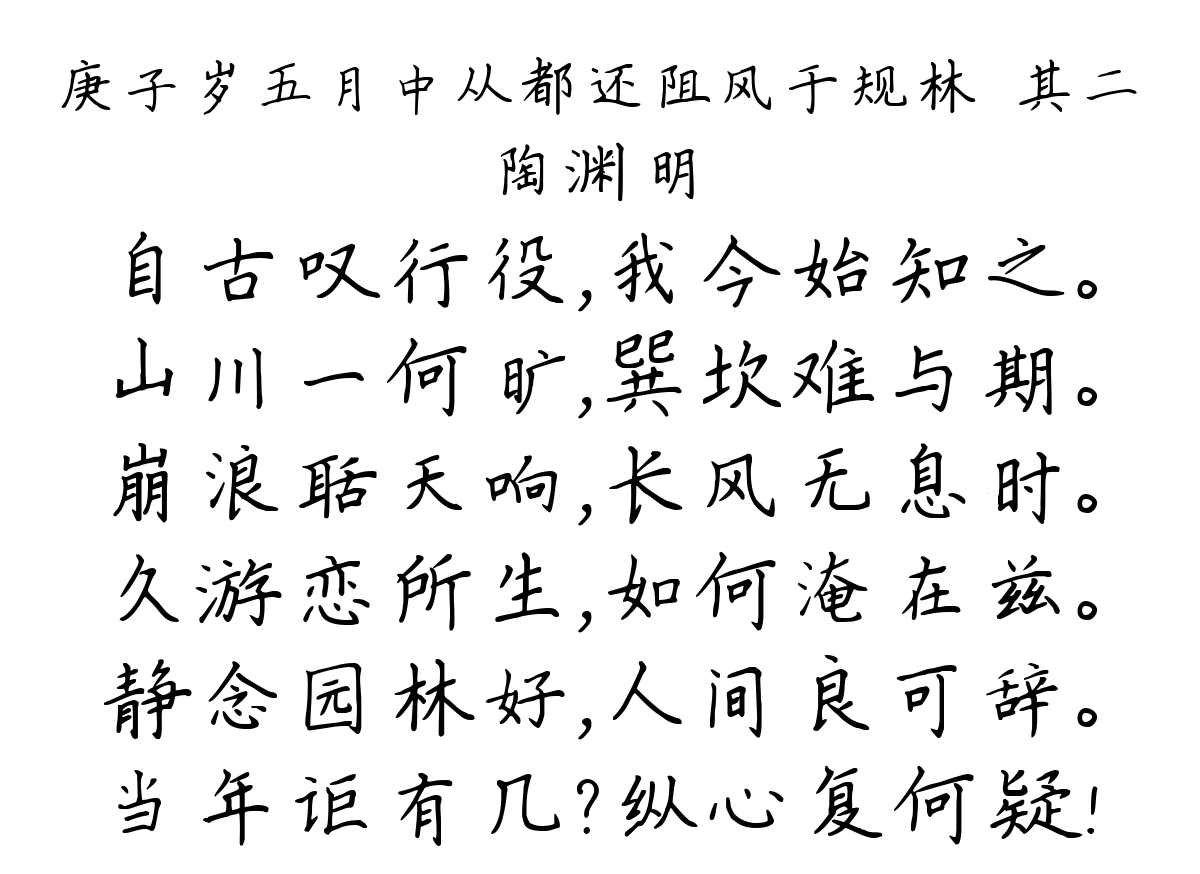 庚子岁五月中从都还阻风于规林 其二
陶渊明
自古叹行役,我今始知之。
山川一何旷,巽坎难与期。
崩浪聒天响,长风无息时。
久游恋所生,如何淹在兹。
静念园林好,人间良可辞。
当年讵有几?纵心复何疑!